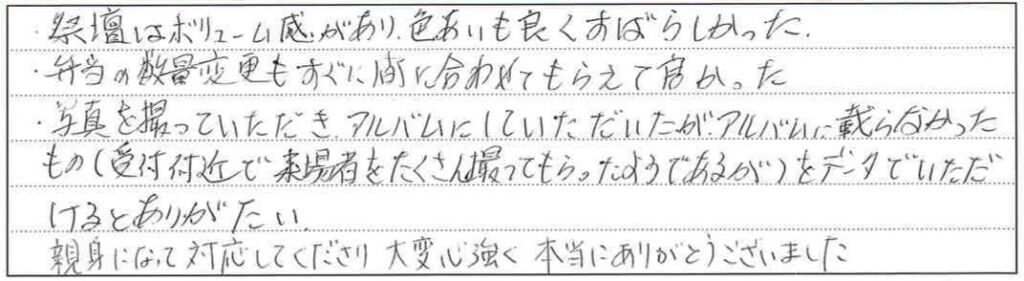 ・祭壇はボリューム感があり、色あいも良くすばらしかった。
・弁当の数量変更もすぐに間に合わせてもらえて良かった
・写真を撮っていただき、アルバムにしていただいたが、アルバムに載らなかった
もの(受付付近で来場者をたくさん撮ってもらったようであるが)をデータでいただ
けるとありがたい。
親身になって対応してくださり 大変心強く 本当にありがとうございました